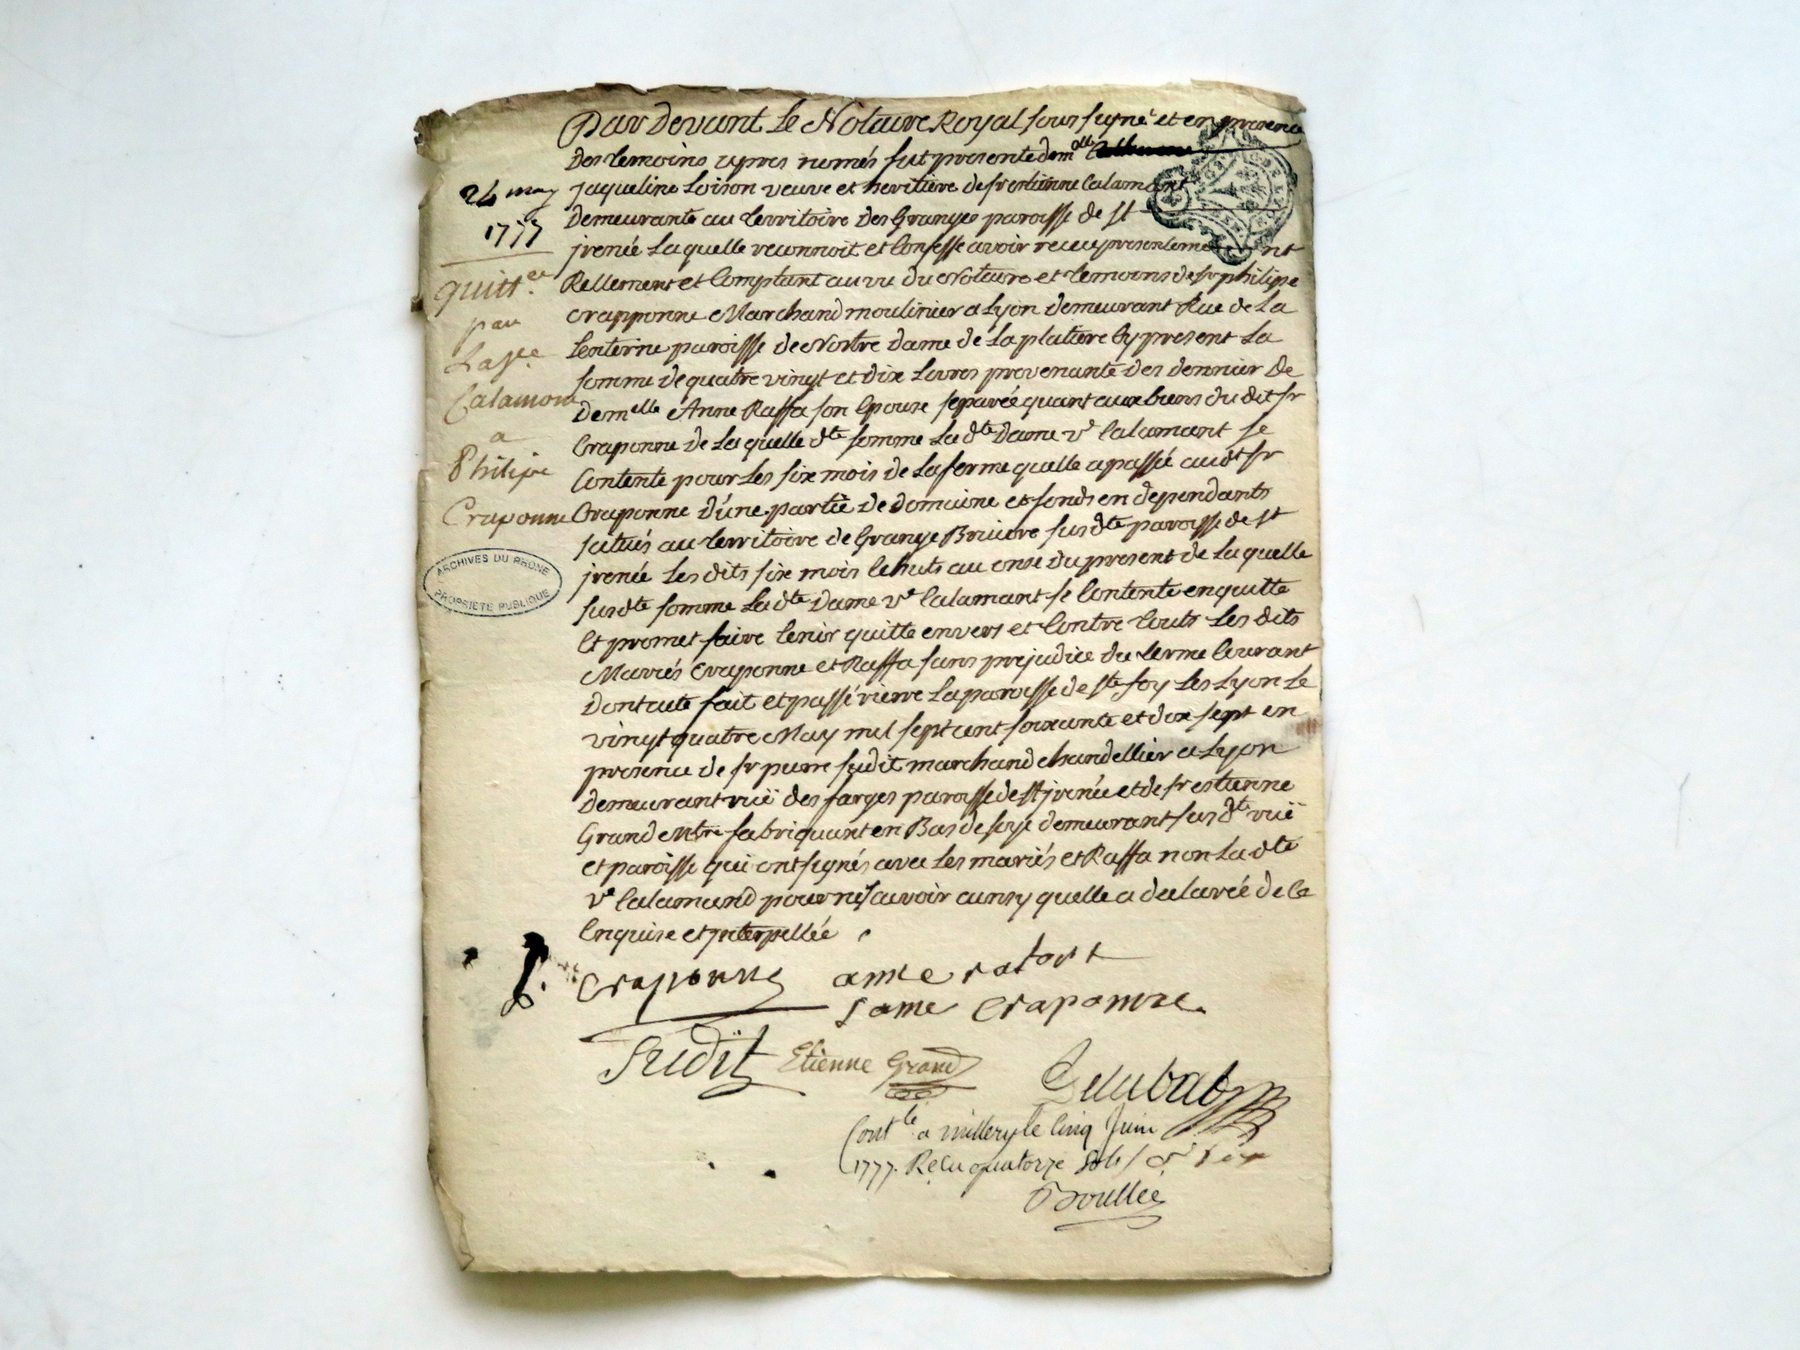 Par Devant Le Notaire Royal sous signé et en presence
Des temoins apres només fut presente demlle
jaqueline Loison veuve et heritiere de sr estienne Calamant
demeurante au territoire des Granges paroisse de st
jrenée Laquelle reconnoit et Confesse avoir receu presentement
Rellement et Comptant au vu du Notaire et temoins de sr philipe
Crapponne Marchand moulinier a Lyon demeurant Rue de La
Lenterne paroisse de Nortre Dame de La platiere Cy present La
somme de quatre vingt et Dix Livres provenante des dennier de
Demelle Anne Raffa son Epouse separée quant aux biens du dit sr
Craponne de Laquelle dte somme La dte Dame ve Calamant se
Contente pour Les six mois de La ferme quelle a passée audt sr
Craponne D'une partie de Domaine et fonds en dependants
situés au territoire de Grange Bruiere susdte paroisse de st
jrenée Les dits six mois Echuts au onse du present de Laquelle
susdte somme La dte Dame ve Calamant se Contente en quitte
Et promet faire tenir quitte envers et Contre touts Les dits
Mariés Craponne et Raffa sans prejudice du terme Courant
Dont acte fait et passé riere La paroisse de ste foy Les Lyon Le
vingt quatre May mil sept cent soixante et dix sept en
presence de sr pierre sudit marchand chandellier a Lyon
demeurant ruë des farges paroisse de st jrenée et de sr estienne
Grand Mtre fabriquant en Bas de soye demeurant sus dte ruë
et paroisse qui ont signés avec Les mariés et Raffa non La dte
ve Calamand pour ne sçavoir ainsy quelle a declarée de Ce
Enquise et jnterpellée
24 may
1777
quittce
par
La ve
Calamont
a
Philipe
Craponne
ARCHIVES DU RHÔNE
PROPRIÉTÉ PUBLIQUE
Craponne anne rafort
fame Craponne.
Sudit Etienne Grand
Contlé a millery le Cinq Juin
1777. Reçu quatorze sols
Boullée